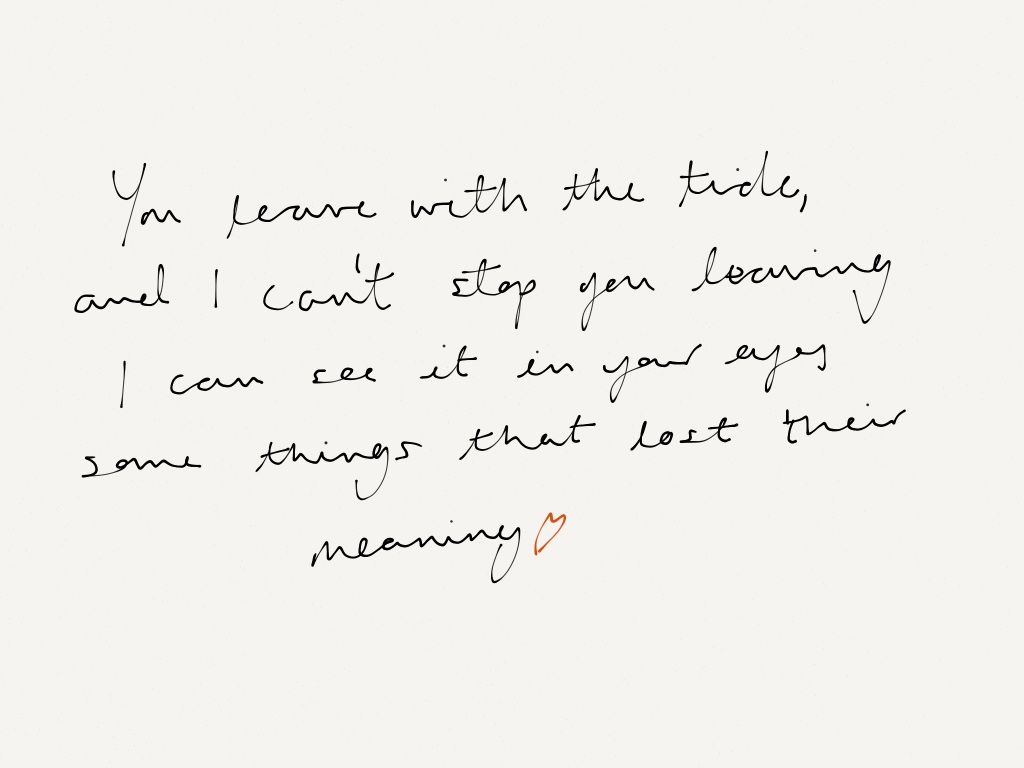 You leave with the tide,
and I can't stop you leaving
I can see it in your eyes
some things that lost their
meaning♡